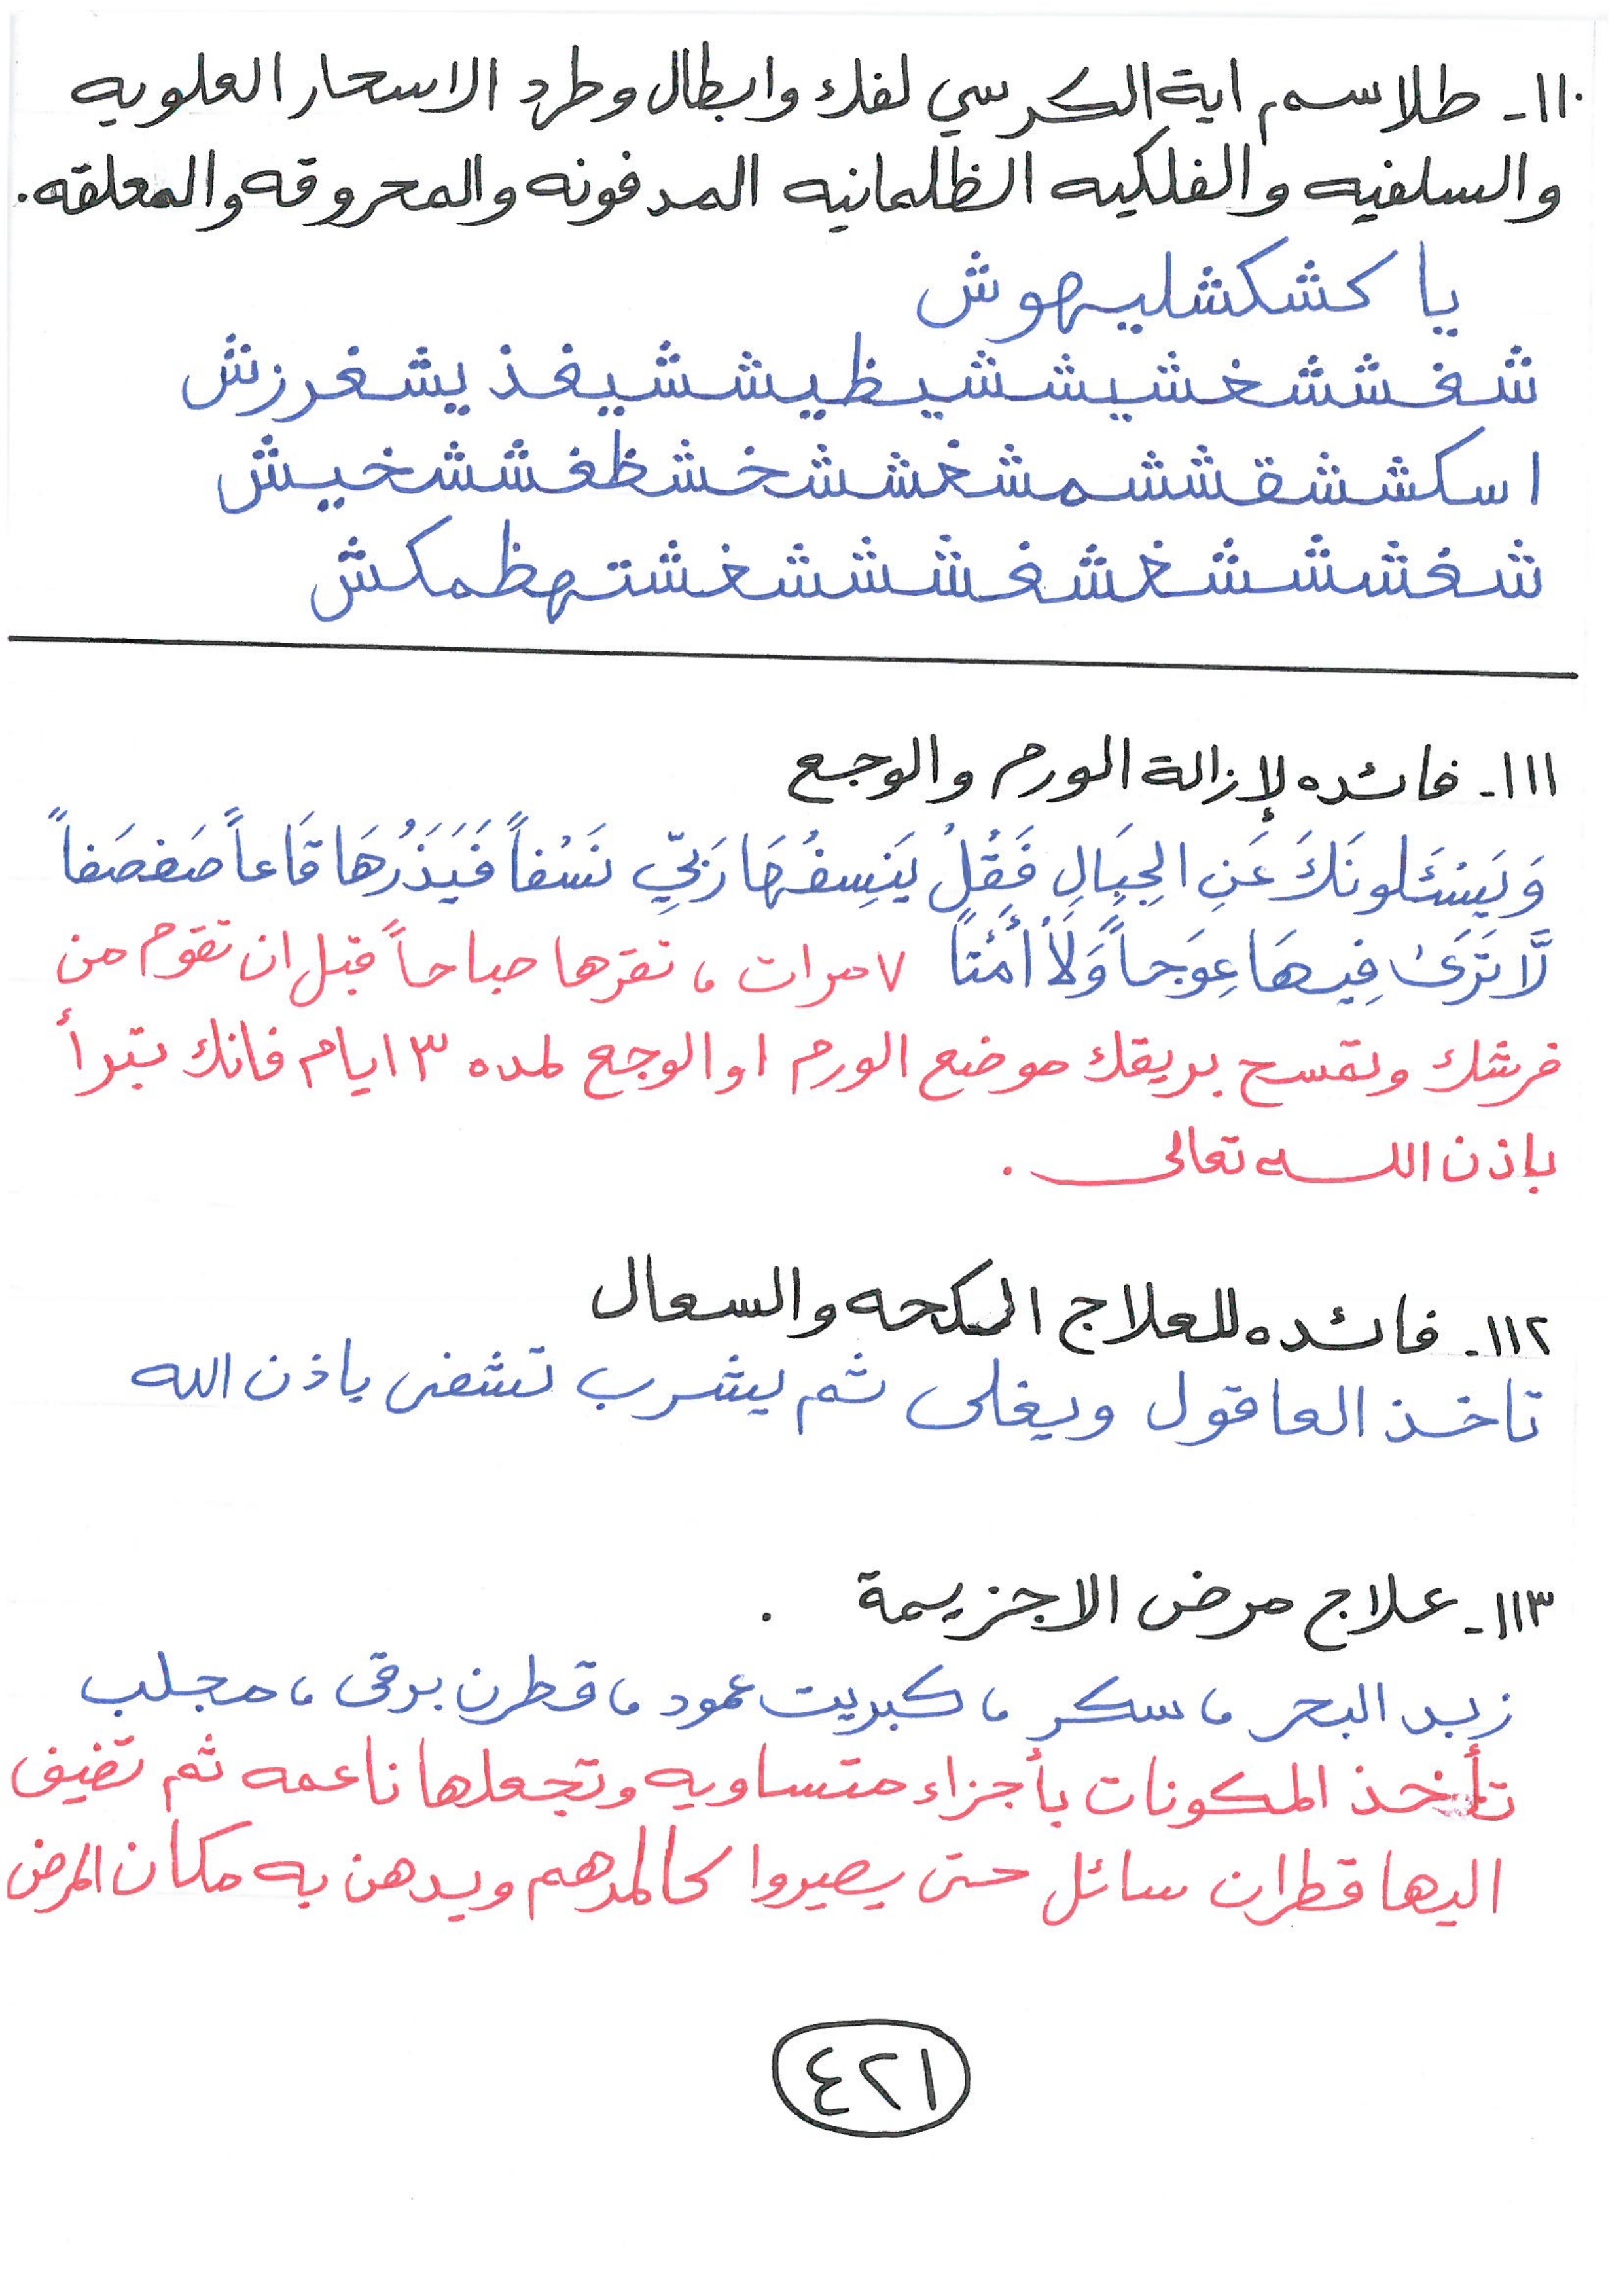 ١١٠- طلاسم اية الكرسي لفك وابطال وطرد الاسحار العلويه
والسلفيه والفلكيه الظلمانيه المدفونه والمحروقه والمعلقه.
يا كشكشليهوش
شفششغشيششيظيششيفذ يشغرزش
اسكششقششمشغششخشظغششخيش
شغشششغشغشششغشتهظمكش
١١١- فائده لإزالة الورم والوجع
وَيَسْئَلونَكَ عَنِ الجِبَالِ فَقُلْ يَنسِفُهَا رَبِّي نَسْفاً فَيَذَرُهَا قَاعاً صَفصَفاً
لَّا تَرَىٰ فِيهَا عِوَجاً وَلَا أَمْتاً ٧ مرات ، تقرها صباحاً قبل ان تقوم من
فرشك وتمسح بريقك موضع الورم او الوجع لمده ٣ ايام فانك تبرأ
باذن الله تعالى .
١١٢- فائده للعلاج الكحه والسعال
تاخذ العاقول ويغلى ثم يشرب تشفى باذن الله
١١٣- علاج مرض الاجزيمة .
زبد البحر ، سكر ، كبريت عمود ، قطرن برقى ، مجلب
تأخذ المكونات بأجزاء متساويه وتجعلها ناعمه ثم تضيف
اليها قطران سائل حتى يصيروا كالمرهم ويدهن به مكان المرض
٤٢١